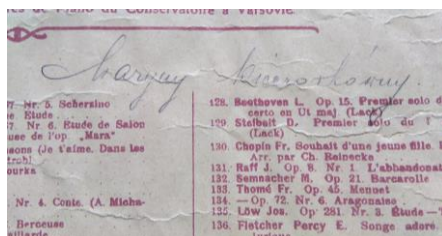 de Piano du Conservatoire à Varsovie
Nr. 5. Scherzino
Etude
Nr. 6. Etude de Salon
de l'op. „Mara"
(Je t'aime. Dans les
Nr. 4. Conte. (A. Micha-
Berceuse
128. Beethoven L. Op. 15. Premier solo d
certo en Ut maj. (Lack)
129. Steibelt D. Premier solo du 1
(Lack)
130. Chopin Fr. Souhait d'une jeune fille.
Arr. par Ch. Reinecke
131. Raff J. Op. 8. Nr. 1. L'abbandonat
132. Semnacher M. Op. 21. Barcarolle
133. Thomé Fr. Op. 45. Menuet
134. — Op. 72. Nr. 6. Aragonaise
135. Löw Jos. Op. 281. Nr. 3. Étude — T
136. Fletcher Percy E. Songe adoré